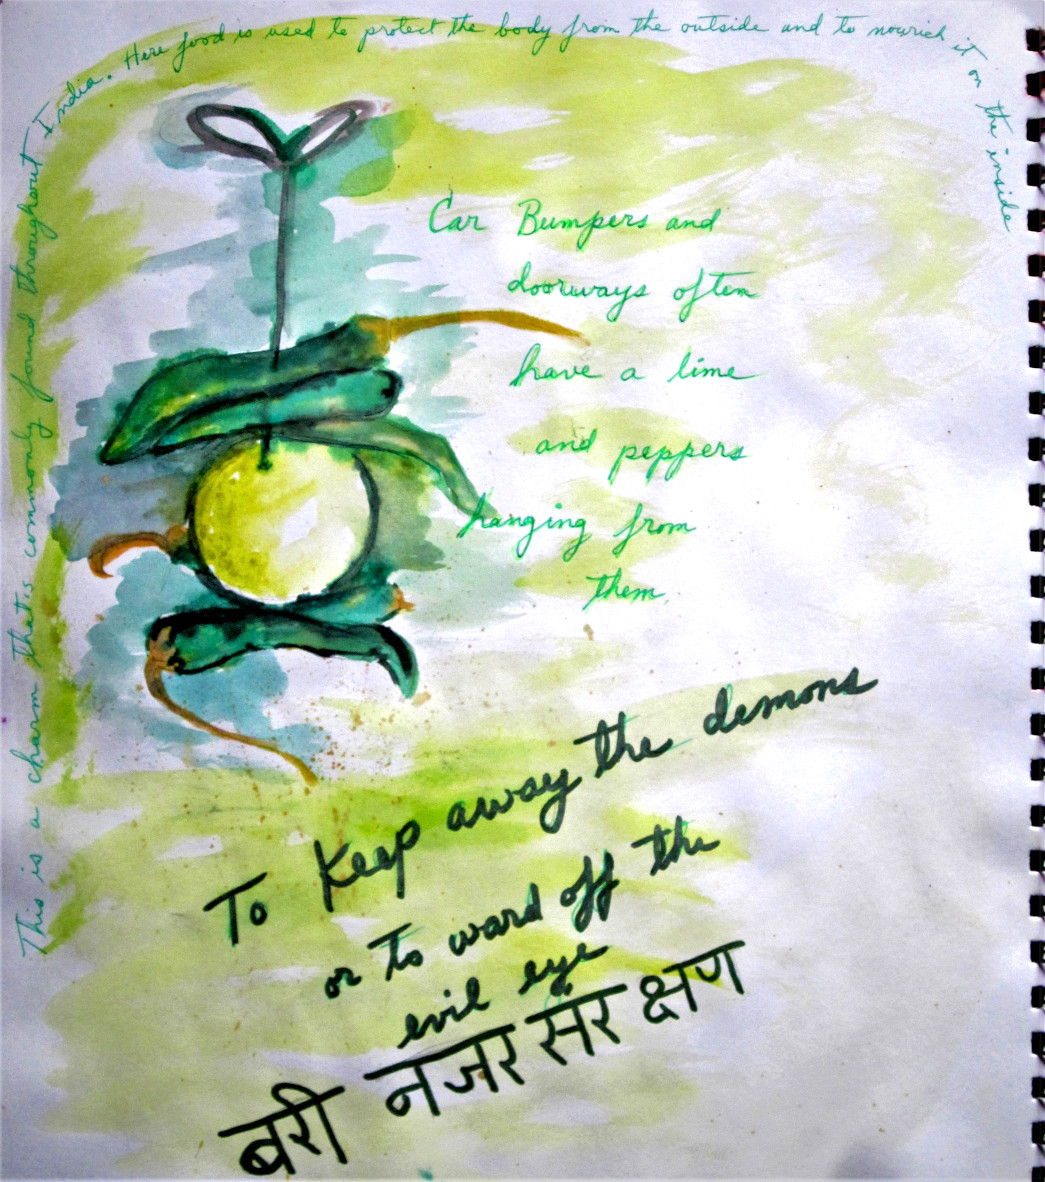 This is a charm that is commonly found throughout India. Here food is used to protect the body from the outside and to nourish it on the inside
Car Bumpers and
doorways often
have a lime
and peppers
hanging from
them
To Keep away the demons
or to ward off the
evil eye
बरी नजर संरक्षण